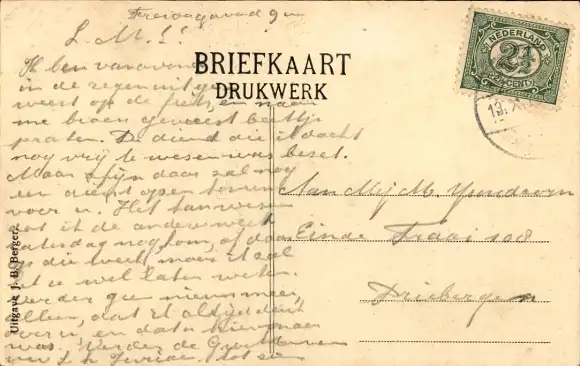 Vreidagavond 9 u
L. M.!!
Ik ben vanavond
in de regen uit ge
weest op de fiets, en naar
me broer geweest beetje
praten. De dienst die ik dacht
nog vrij te wesen was bezet.
Maar zijn daar zal nog
een dienst open komen
voor u. Het kan wesen
dat ik de andere week
Zaterdag nog kom, of daar
die week, maar ik zal
het u wel laten weten.
verder geen nieuws meer,
alleen, dat ik altijd denk
over u, en dat
was. Verder de Groeten
tot zien
BRIEFKAART
DRUKWERK
NEDERLAND
2½
CENT
Aan Mej M.
Einde Traai 108
Driebergen
Uitgave J. B. Berger.